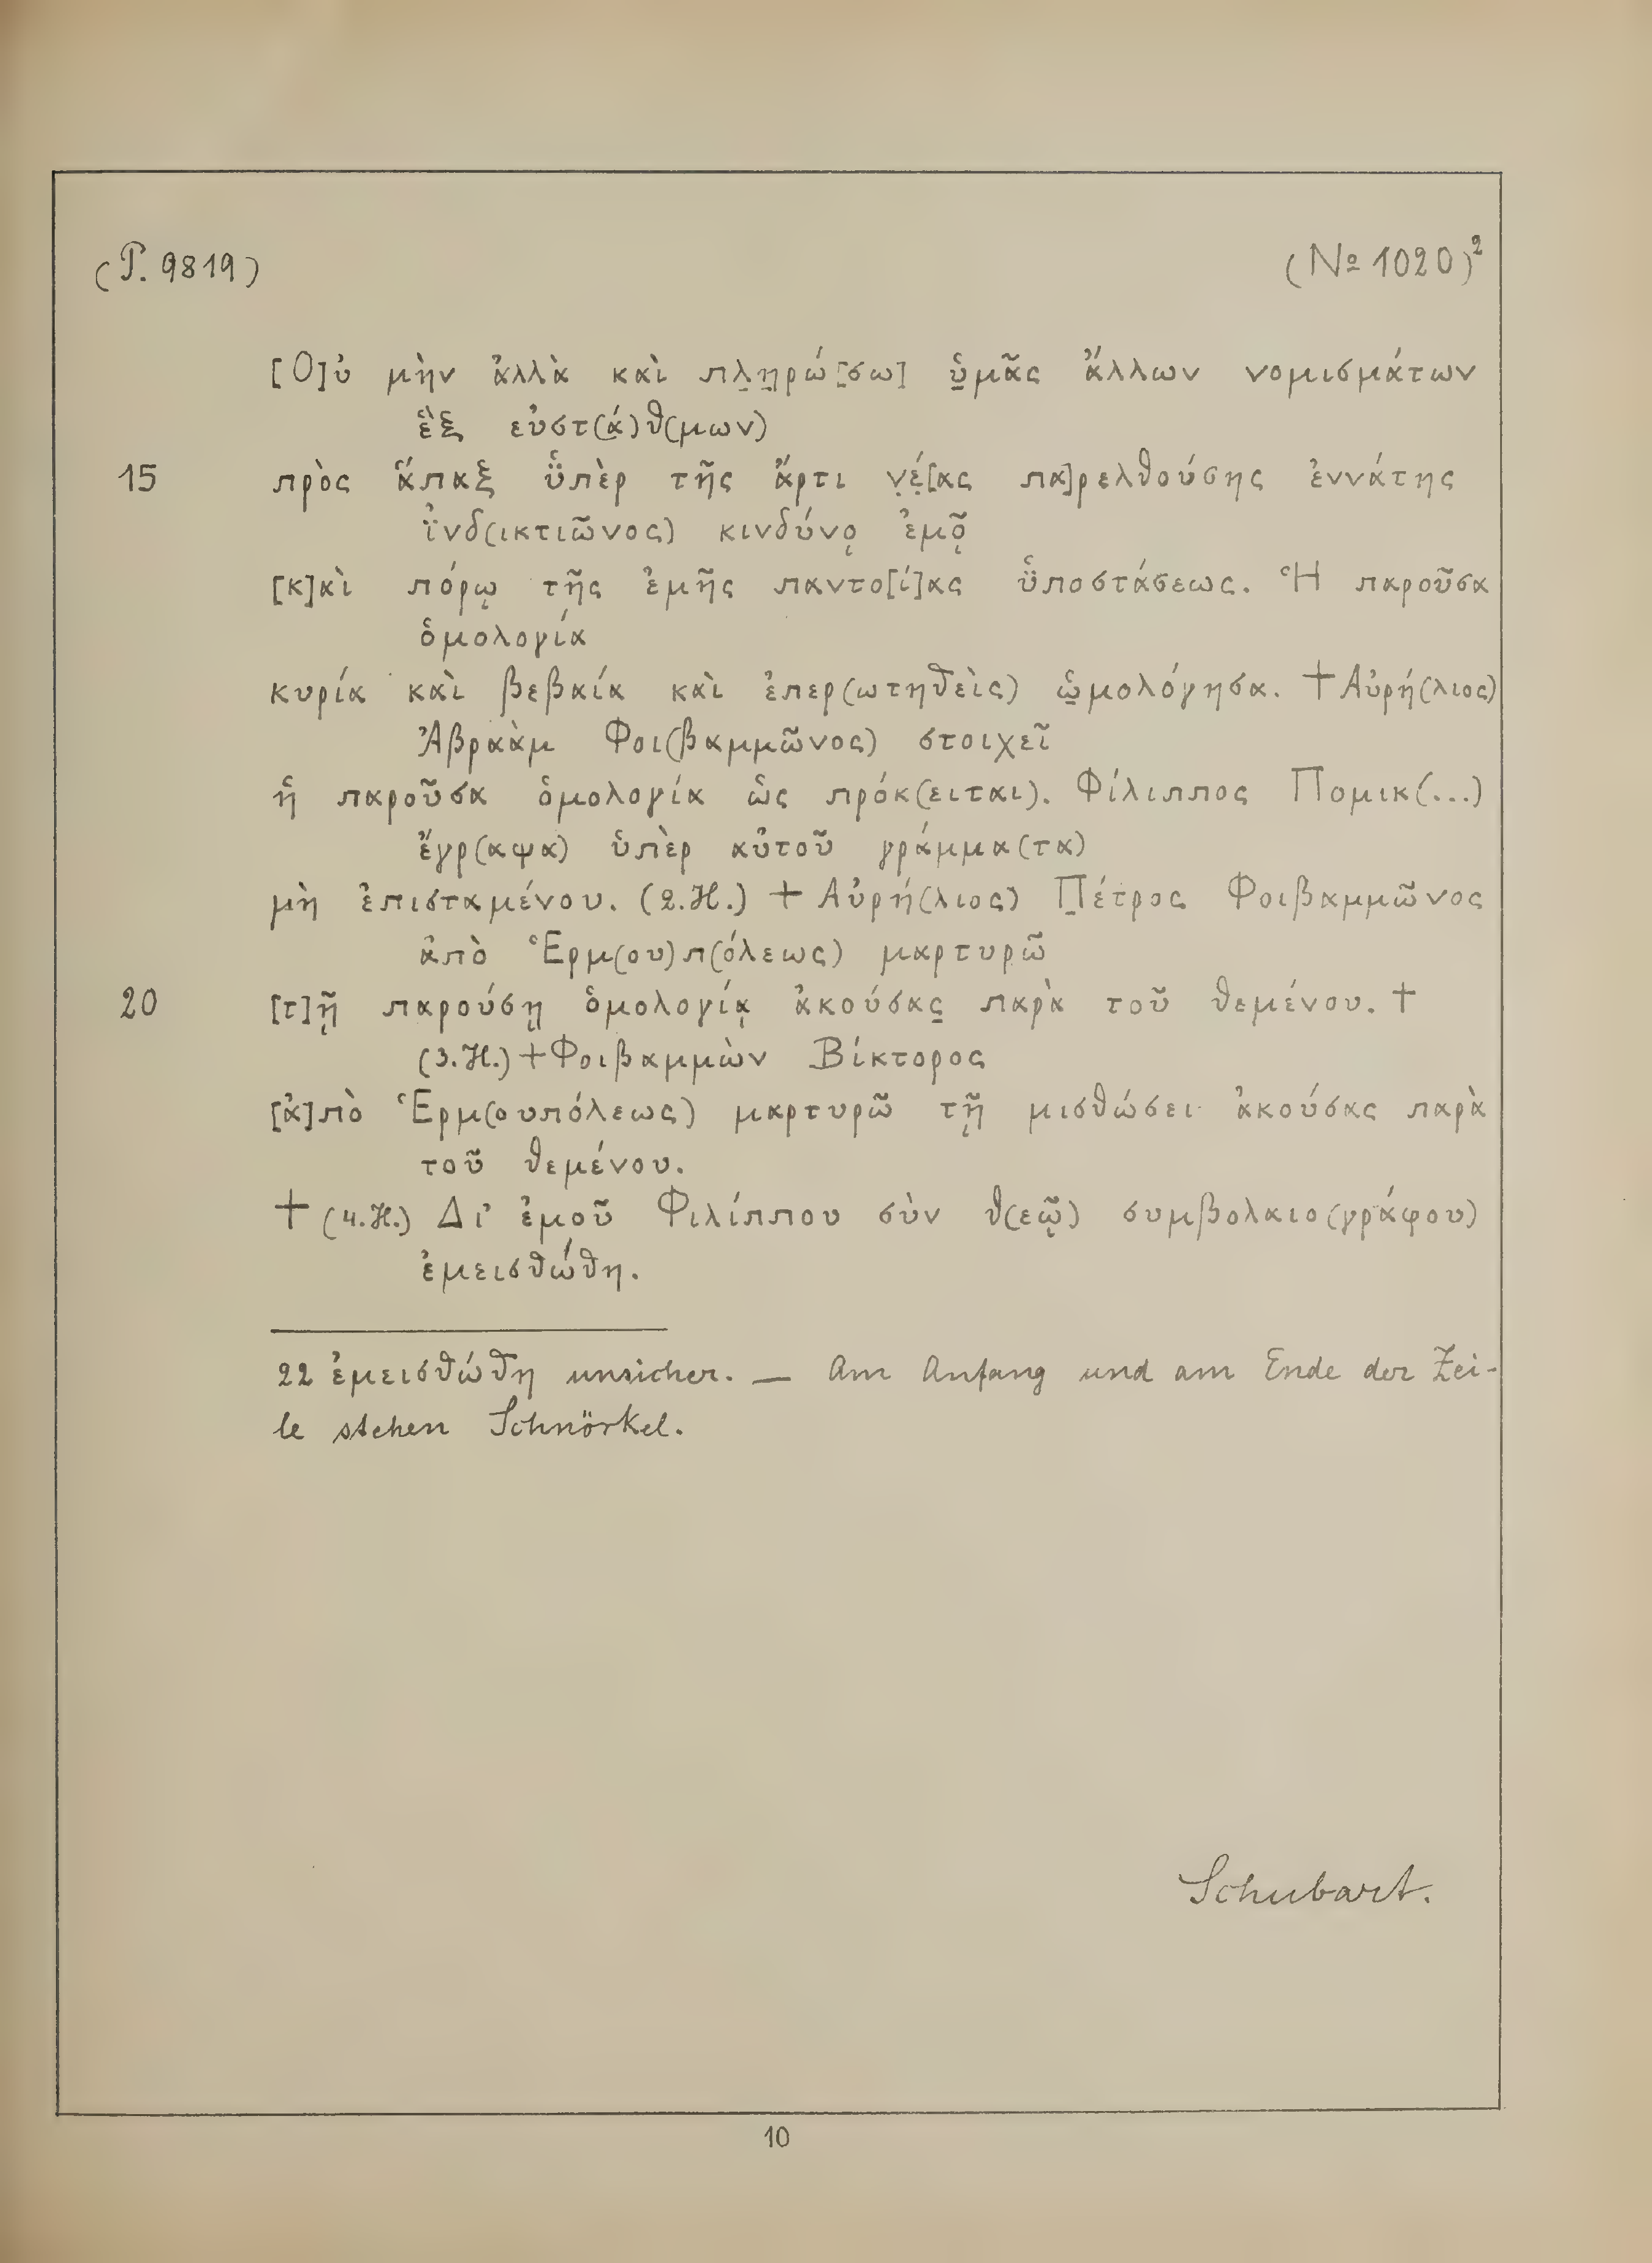 (P. 9819) (№ 1020)²
[Ο]ὐ μὴν ἀλλὰ καὶ πλ̣η̣ρώ[σω] ὑ̣μᾶς ἄλλων νομισμάτων
ἓξ εὐστ(ά)θ(μων)
15 πρὸς ἅπαξ ὑ̈πὲρ τῆς ἄρτι ν̣έ̣[ας πα]ρελθούσης ἐννάτης
ἰ̈νδ(ικτιῶνος) κινδύνο̣ ἐμο̣͂
[κ]αὶ πόρῳ τῆς ἐμῆς παντο[ί]ας ὑ̈ποστάσεως. Ἡ παροῦσα
ὁμολογία
κυρία καὶ βεβαία καὶ ἐπερ(ωτηθεὶς) ὡ̣μολόγησα. † Αὐρή(λιος)
Ἀβραὰμ Φοι(βαμμῶνος) στοιχεῖ
ἡ παροῦσα ὁμολογία ὡς πρόκ(ειται). Φίλιππος Πομικ(...)
ἔγρ(αψα) ὑπὲρ αὐτοῦ γράμμα(τα)
μὴ ἐπισταμένου. (2.H.) + Αὐρή(λιος) Π̣έτρος Φοιβαμμῶνος
ἀπὸ Ἑρμ(ου)π(όλεως) μαρτυρῶ
20 [τ]ῇ παρούσῃ ὁμολογίᾳ ἀκούσας̣ παρὰ τοῦ θεμένου. †
(3.H.) + Φοιβαμμὼν Βίκτορος
[ἀ]πὸ Ἑρμ(ουπόλεως) μαρτυρῶ τῇ μισθώσει ἀκούσας παρὰ
τοῦ θεμένου.
† (4.H.) Δι' ἐμοῦ Φιλίππου σὺν θ(εῷ) συμβολαιο(γράφου)
ἐμεισθώθη.
22 ἐμεισθώθη unsicher. — Am Anfang und am Ende der Zei-
le stehen Schnörkel.
Schubart.
10